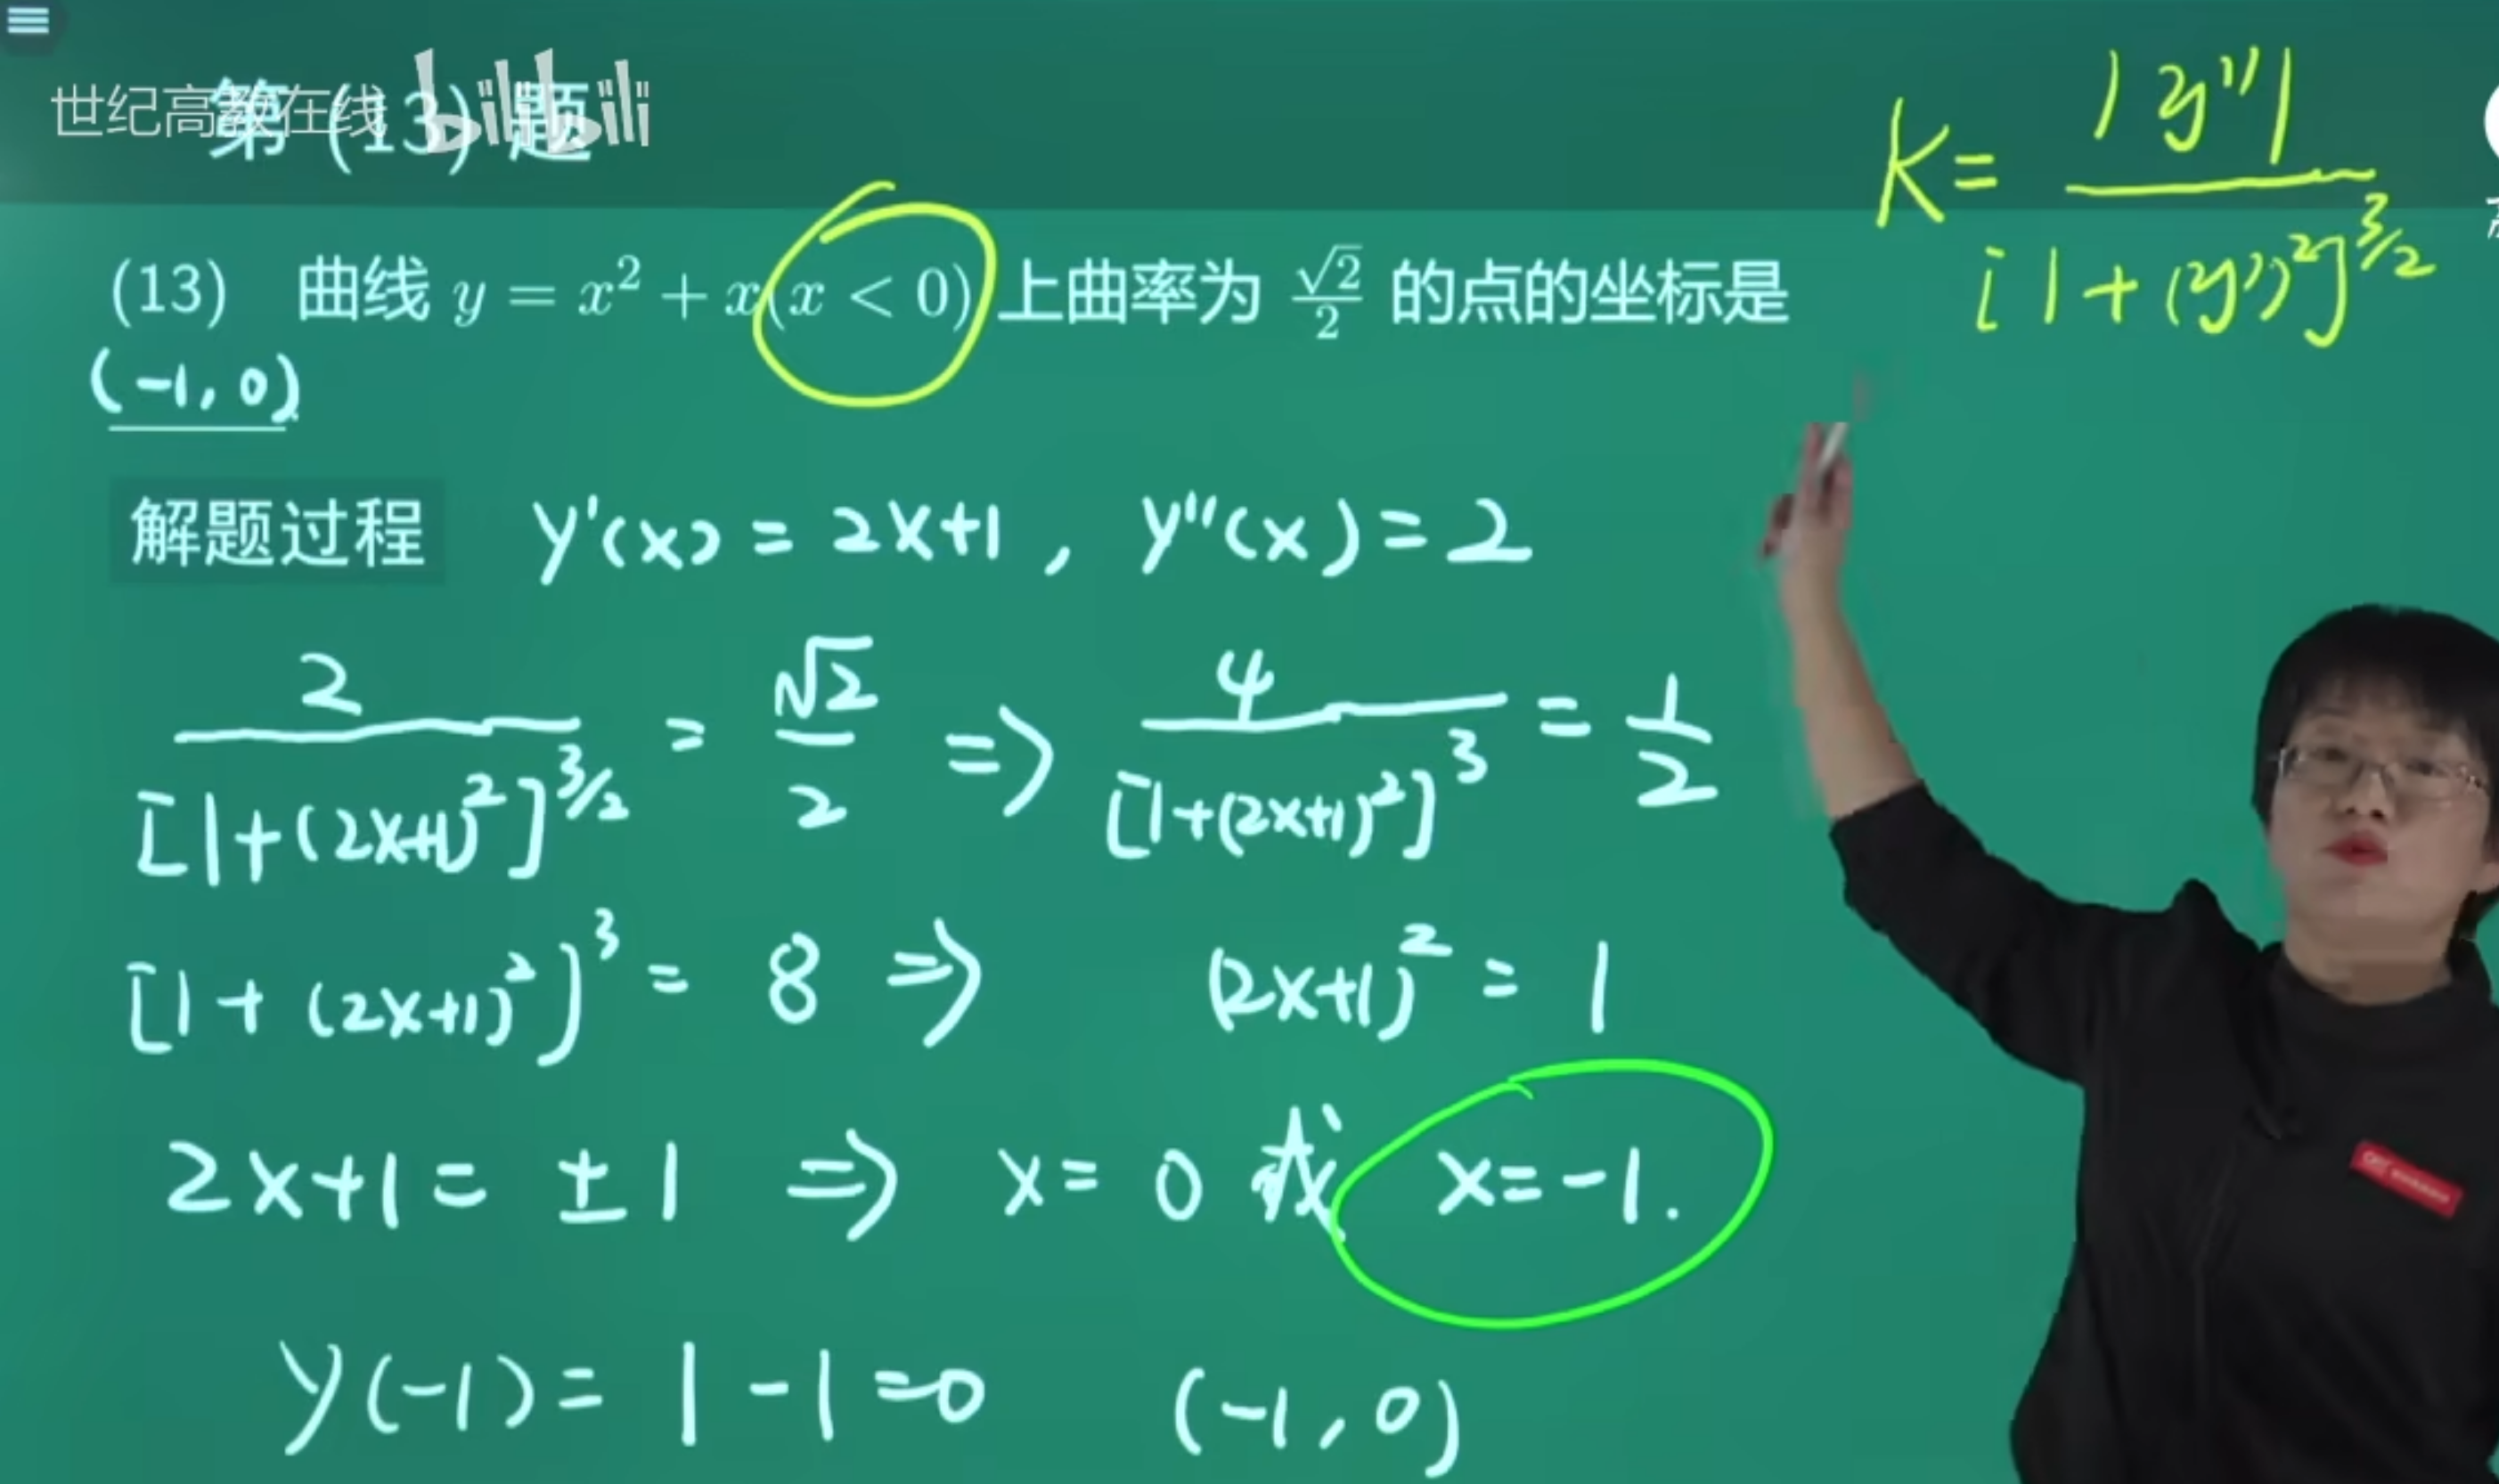 世纪高教在线 bilibili
第 (13) 题
K = |y''| / [1+(y')²]^{3/2}
(13) 曲线 y = x² + x(x < 0) 上曲率为 √2/2 的点的坐标是
(-1,0).
解题过程 y'(x) = 2x+1 , y''(x) = 2
2 / [1+(2x+1)²]^{3/2} = √2/2 => 4 / [1+(2x+1)²]³ = 1/2
[1+(2x+1)²]³ = 8 => (2x+1)² = 1
2x+1 = ±1 => x = 0 或 x = -1.
y(-1) = 1 - 1 = 0 (-1,0)